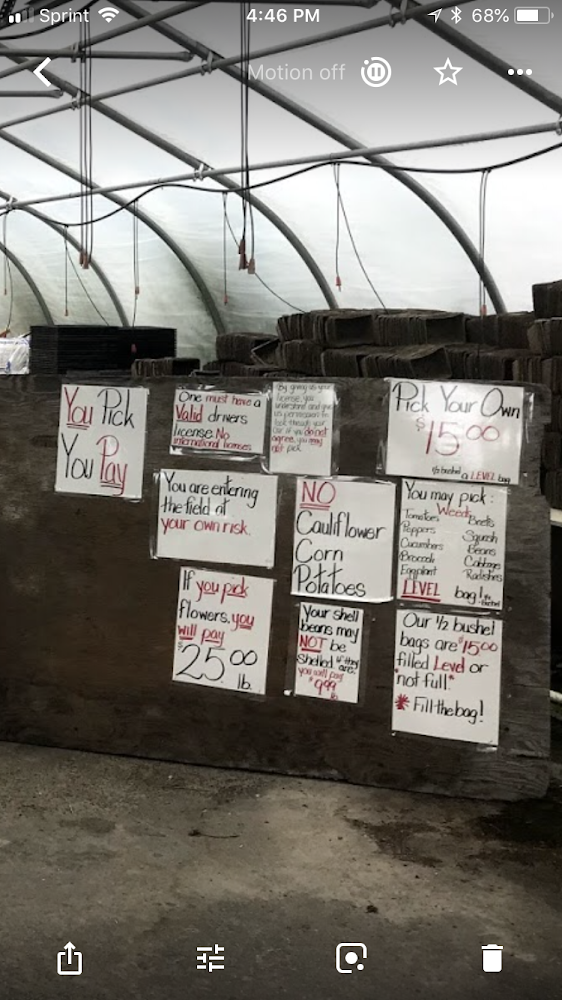 Sprint
4:46 PM
68%
Motion off
You Pick
You Pay
One must have a
Valid drivers
license. No
international licenses
By giving us your
license, you
understand and give
us permission to
look through your
car. If you do not
agree, you may
not pick.
Pick Your Own
$15.00
1/2 bushel
a LEVEL bag
You are entering
the field at
your own risk.
NO
Cauliflower
Corn
Potatoes
You may pick:
Weeds
Tomatoes Beets
Peppers Squash
Cucumbers Beans
Broccoli Cabbage
Eggplant Radishes
LEVEL bag! 1/2 bushel
If you pick
flowers, you
will pay
$25.00
lb.
Your shell
beans may
NOT be
shelled if they
are.
you will pay
$9.99
lb
Our 1/2 bushel
bags are $15.00
filled Level or
"not full."
* Fill the bag!